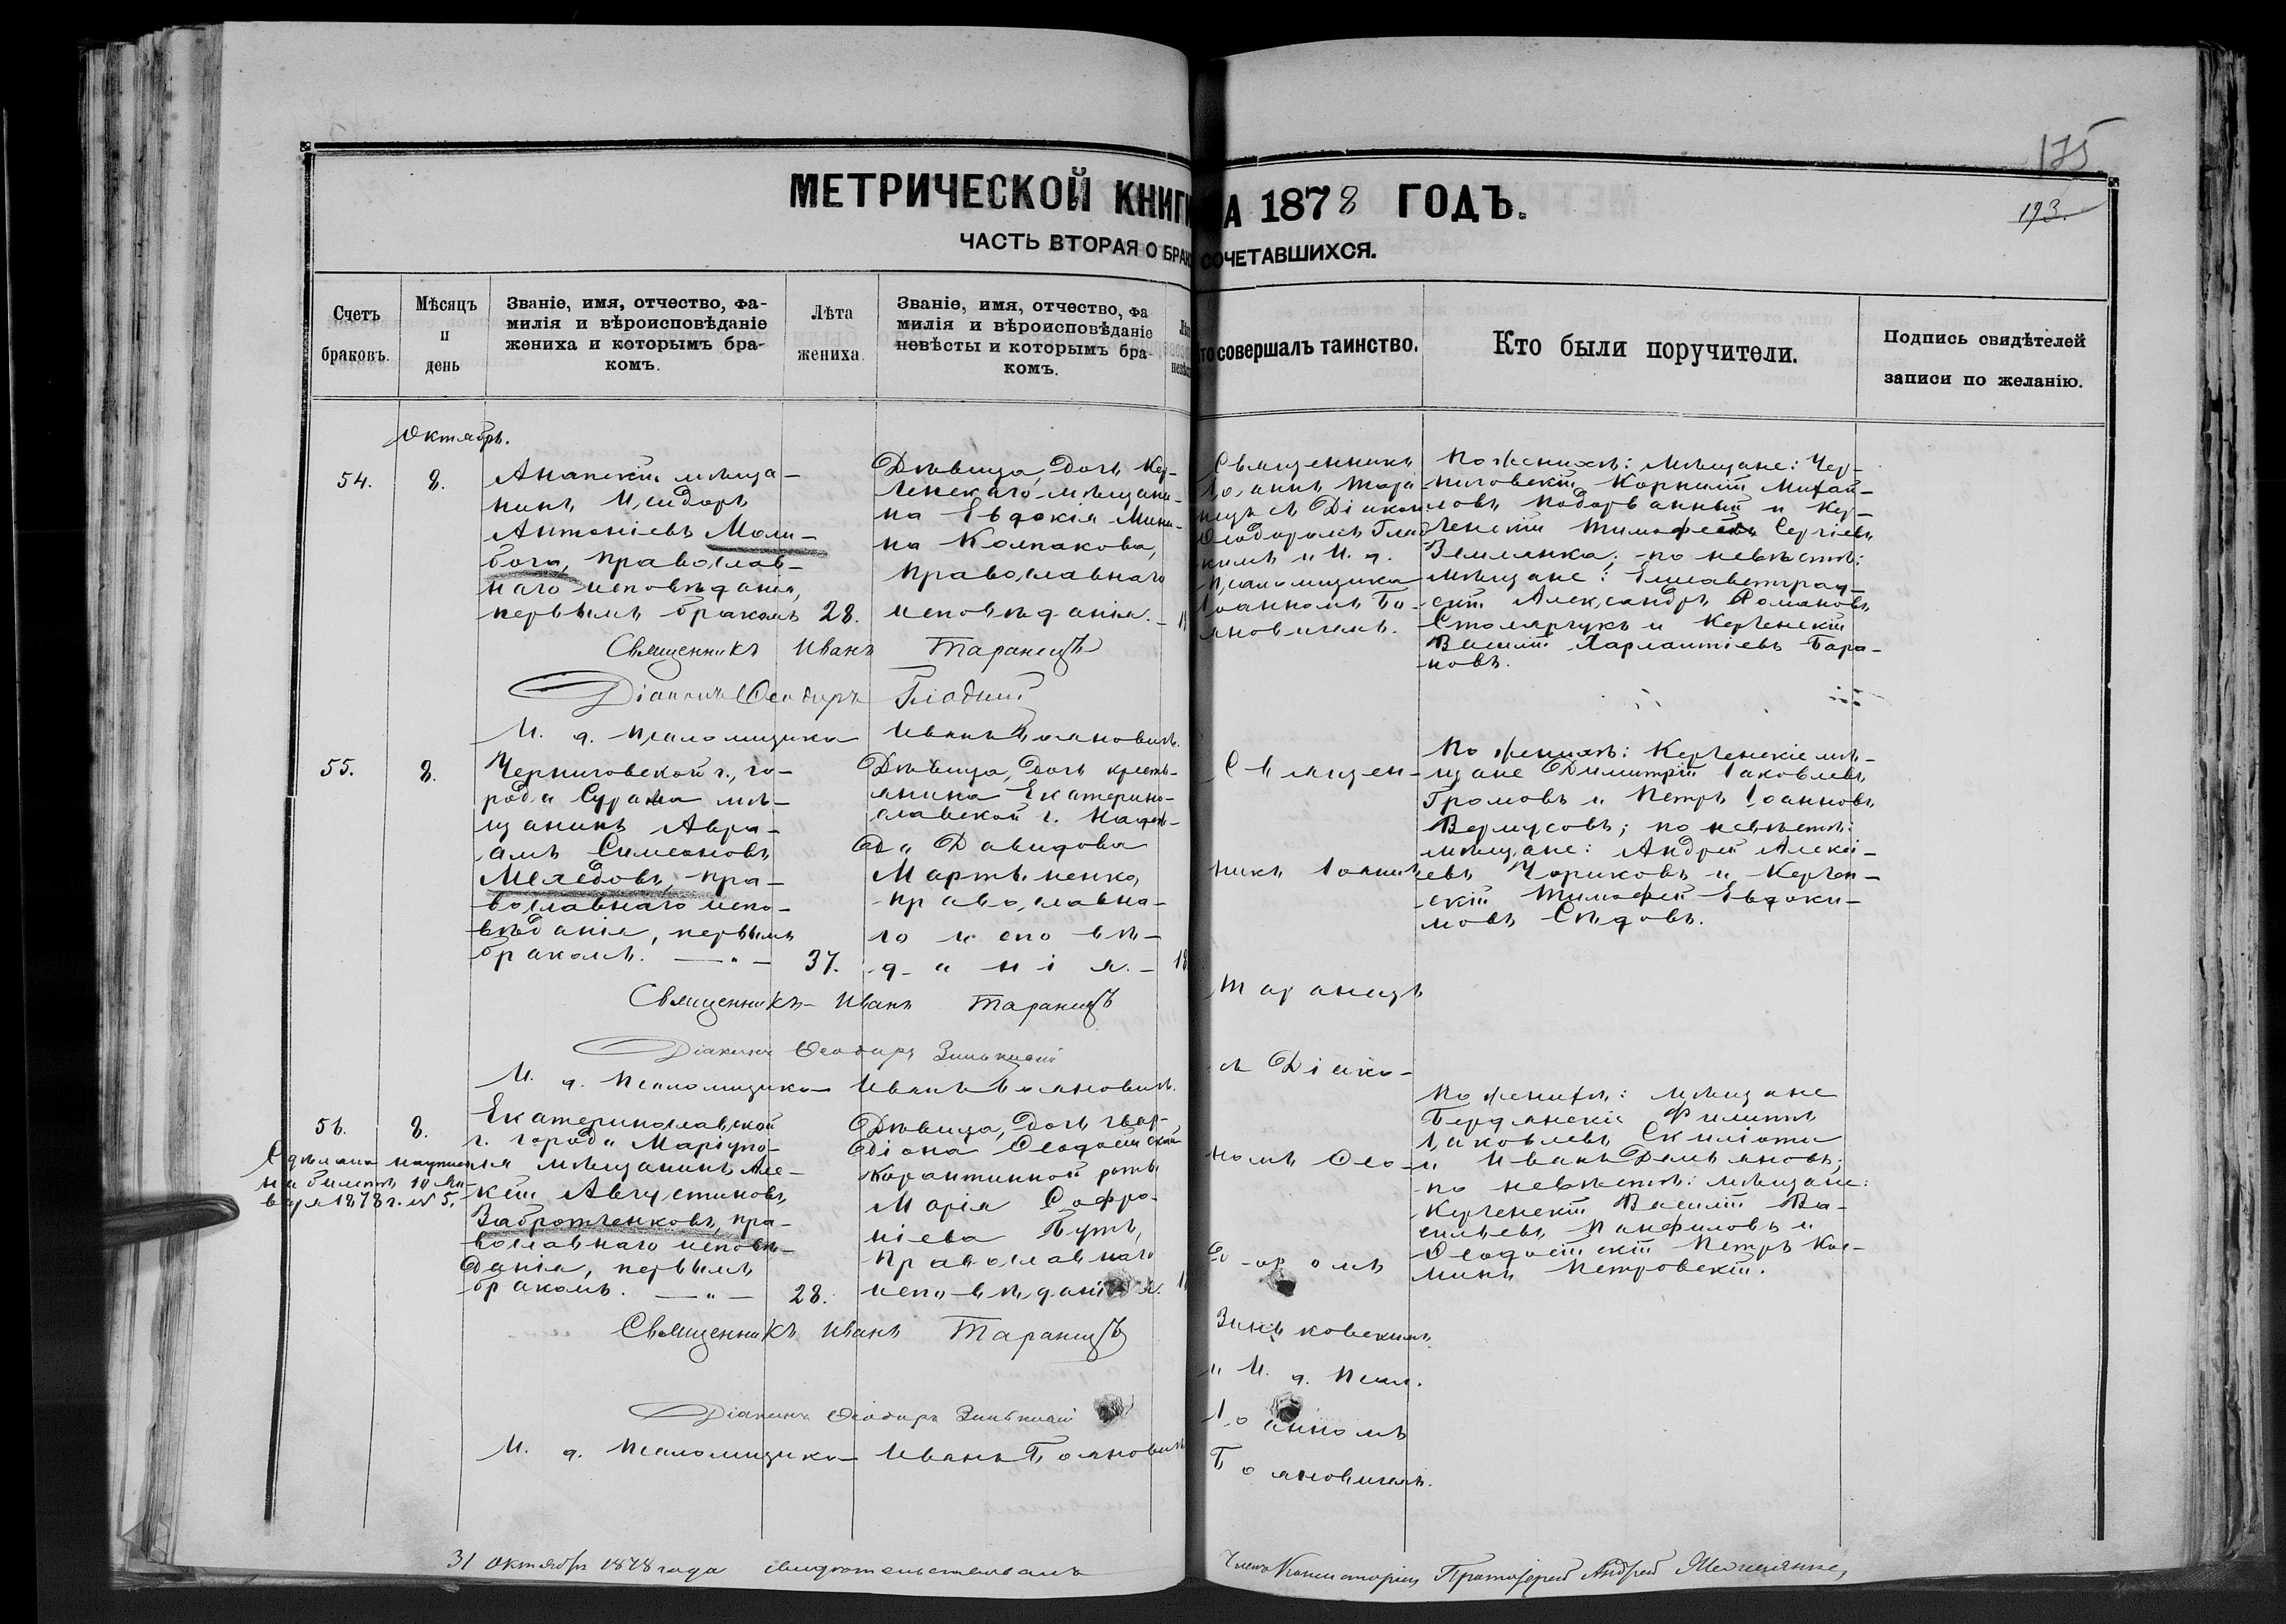 175
193.
МЕТРИЧЕСКОЙ КНИГИ НА 1878 ГОДЪ.
ЧАСТЬ ВТОРАЯ О БРАКОСОЧЕТАВШИХСЯ.
Счетъ браковъ.
Мѣсяцъ и день
Званіе, имя, отчество, фа-
милія и вѣроисповѣданіе
жениха и которымъ бра-
комъ.
Лѣта жениха.
Званіе, имя, отчество, фа
милія и вѣроисповѣданіе
невѣсты и которымъ бра-
комъ.
то совершалъ таинство.
Кто были поручители.
Подпись свидѣтелей
записи по желанію.
Октябрь.
54.
8.
Анапскій мѣща-
нинъ Исидоръ
Антоніевъ Моли-
бога, православ-
наго исповѣданія,
первымъ бракомъ
28.
Дѣвица, дочь Кер-
ченскаго мѣщани-
на Евдокія Мини-
на Колпакова,
православнаго
исповѣданія.
Священникъ
Іоаннъ Тара
нецъ съ Діакон
Ѳеодоромъ Глад
кимъ и И. д.
Псаломщика
Іоанномъ Бо-
яновичемъ.
По женихѣ: мѣщане: Чер-
ниговскій Корнилій Михай-
ловъ Подорванный и Кер-
ченскій Тимофей Сергіевъ
Землянка; по невѣстѣ:
мѣщане: Елисаветград-
скій Александръ Романовъ
Столярчукъ и Керченскій
Василій Харлампіевъ Бара-
новъ.
Священникъ Иванъ Таранецъ
Діаконъ Ѳеодоръ Гладкій
И. д. Псаломщика Иванъ Бояновичъ.
55.
8.
Черниговской г., го-
рода Суража мѣ-
щанинъ Авра-
амъ Симеоновъ
Меледовъ, пра-
вославнаго испо-
вѣданія, первымъ
бракомъ. — " —
37.
Дѣвица, дочь кресть-
янина Екатерино-
славской г. Надеж-
да Давидова
Мартыненко,
православна-
го исповѣ-
данія. —
18
По женихѣ: Керченскіе мѣ-
щане Димитрій Іаковлевъ
Громовъ и Петръ Іоанновъ
по невѣстѣ:
мѣщане: Андрей Алексі-
евъ Чориковъ и Керчен-
скій Тимофей Евдоки-
мовъ Сѣдовъ.
Священникъ Иванъ Таранецъ
Діаконъ Ѳеодоръ Зиньковскій
И. д. Псаломщика Иванъ Бояновичъ.
56.
8.
Сдѣлана надпись
на билетѣ 10 Ян-
варя 1878 г. № 5.
Екатеринославской
г. города Маріупо-
ля мѣщанинъ Але-
ксій Августиновъ
Забротченковъ, пра-
вославнаго исповѣ-
данія, первымъ
бракомъ. — " —
28.
Дѣвица, дочь гвар-
діона Ѳеодосійской
Карантинной роты
Марія Софро-
ніева Бутъ,
православнаго
исповѣданія.
Священ-
никъ Іоаннъ
Таранецъ
съ Діако-
номъ Ѳео-
доромъ
Зиньковскимъ
и И. д. Псал.
Іоанномъ
Бояновичемъ.
По женихѣ: мѣщане
Бердянскіе Филиппъ
Іаковлевъ Скиліоти
и Иванъ Демьяновъ;
по невѣстѣ: мѣщане:
Керченскій Василій Ва-
сильевъ Панфиловъ и
Ѳеодосійскій Петръ Кос-
минъ Петровскій.
Священникъ Иванъ Таранецъ
Діаконъ Ѳеодоръ Зиньковскій
И. д. Псаломщика Иванъ Бояновичъ
31 Октября 1878 года свидѣтельствовалъ
Членъ Консисторіи, Протоіерей Андрей